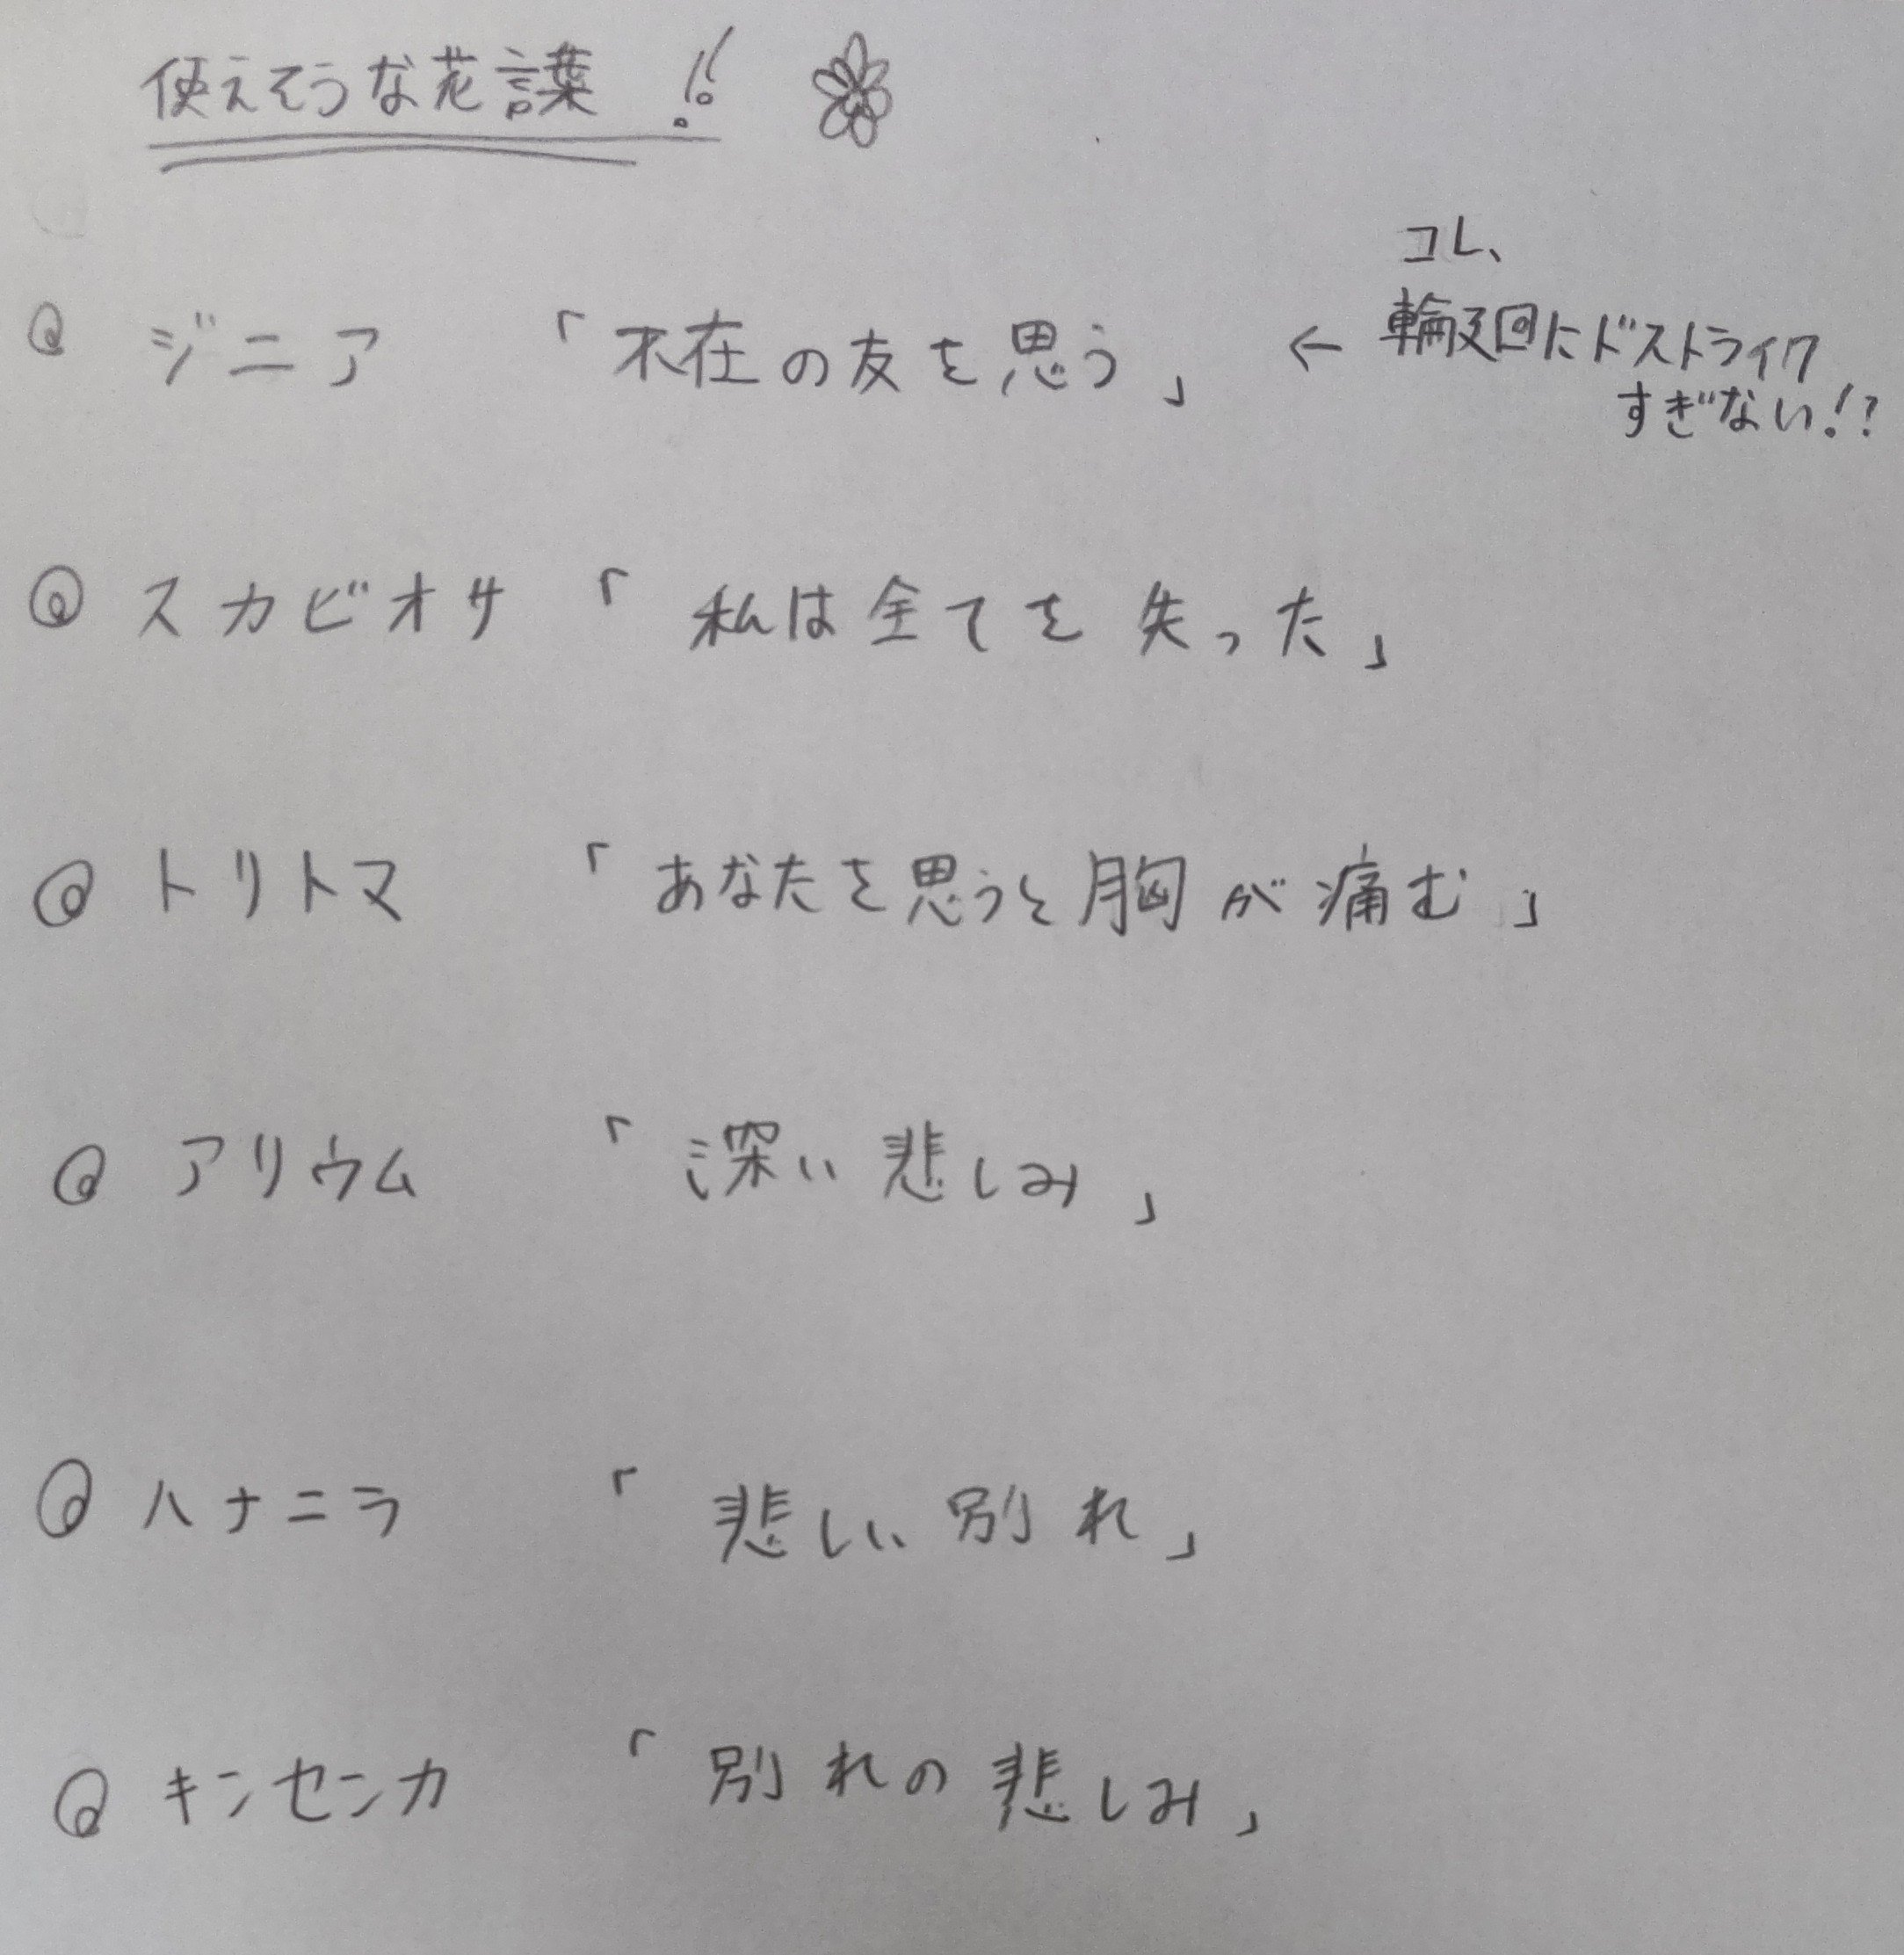 使えそうな花言葉!!
◎ ジニア 「不在の友を思う」 ← コレ、
輪廻回にドストライク
すぎない!?
◎ スカビオサ 「私は全てを失った」
◎ トリトマ 「あなたを思うと胸が痛む」
◎ アリウム 「深い悲しみ」
◎ ハナニラ 「悲しい別れ」
◎ キンセンカ 「別れの悲しみ」